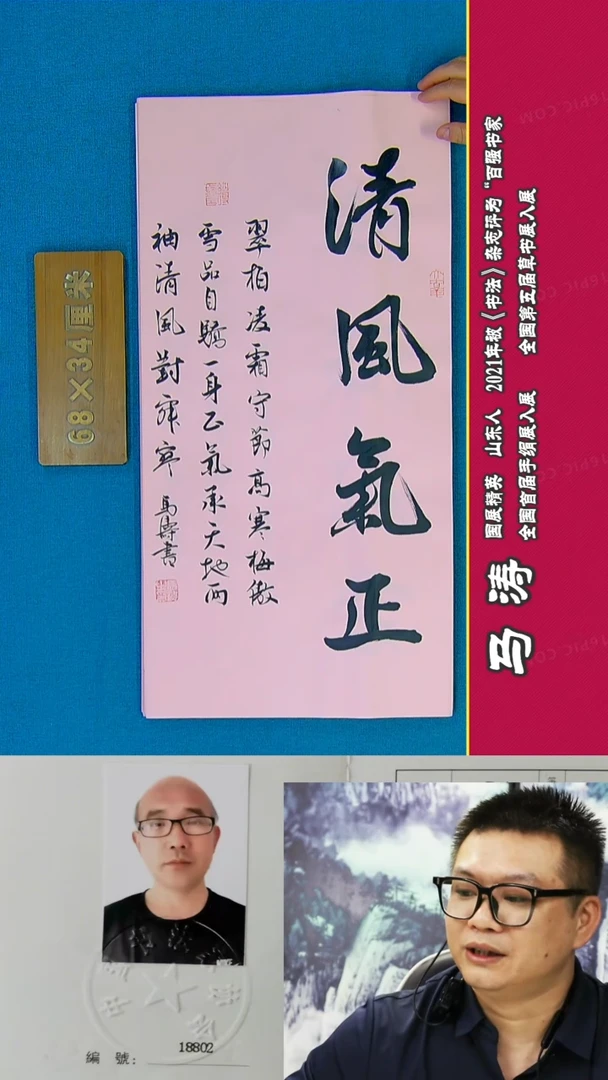 清風氣正
翠柏凌霜守節高寒梅傲
雪品自驕一身正氣承天地兩
袖清風對歲寒 馬濤書
68×34厘米
马涛
国展精英 山东人 2021年被《书法》杂志评为“百强书家
全国首届手绢展入展 全国第五届草书展入展
編 號: 18802